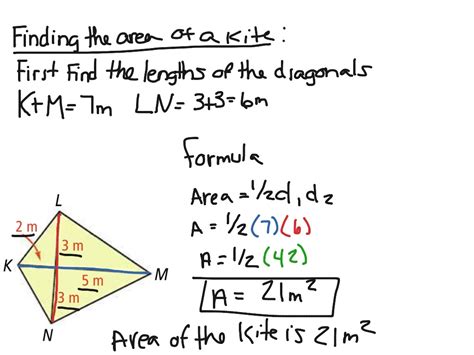 Finding the area of a kite:
First Find the lengths of the diagonals
K+M=7m LN=3+3=6m
Formula
Area=1/2d1d2
A=1/2(7)(6)
A=1/2(42)
A=21m²
Area of the Kite is 21m²
L
2 m
3 m
K
M
5 m
3 m
N